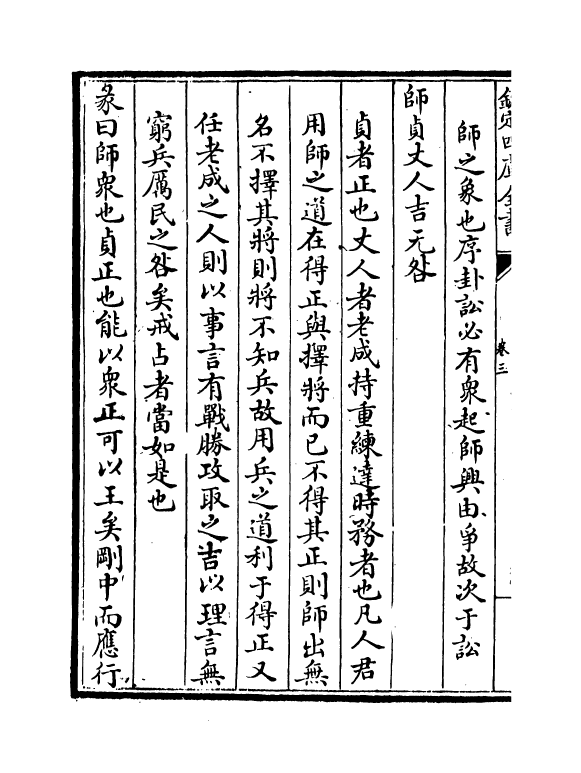 欽定四庫全書
卷三
師之象也序卦訟必有衆起師興由爭故次于訟
師貞丈人吉无咎
貞者正也丈人者老成持重練達時務者也凡人君
用師之道在得正與擇將而已不得其正則師出無
名不擇其將則將不知兵故用兵之道利于得正又
任老成之人則以事言有戰勝攻取之吉以理言無
窮兵厲民之咎矣戒占者當如是也
彖曰師衆也貞正也能以衆正可以王矣剛中而應行